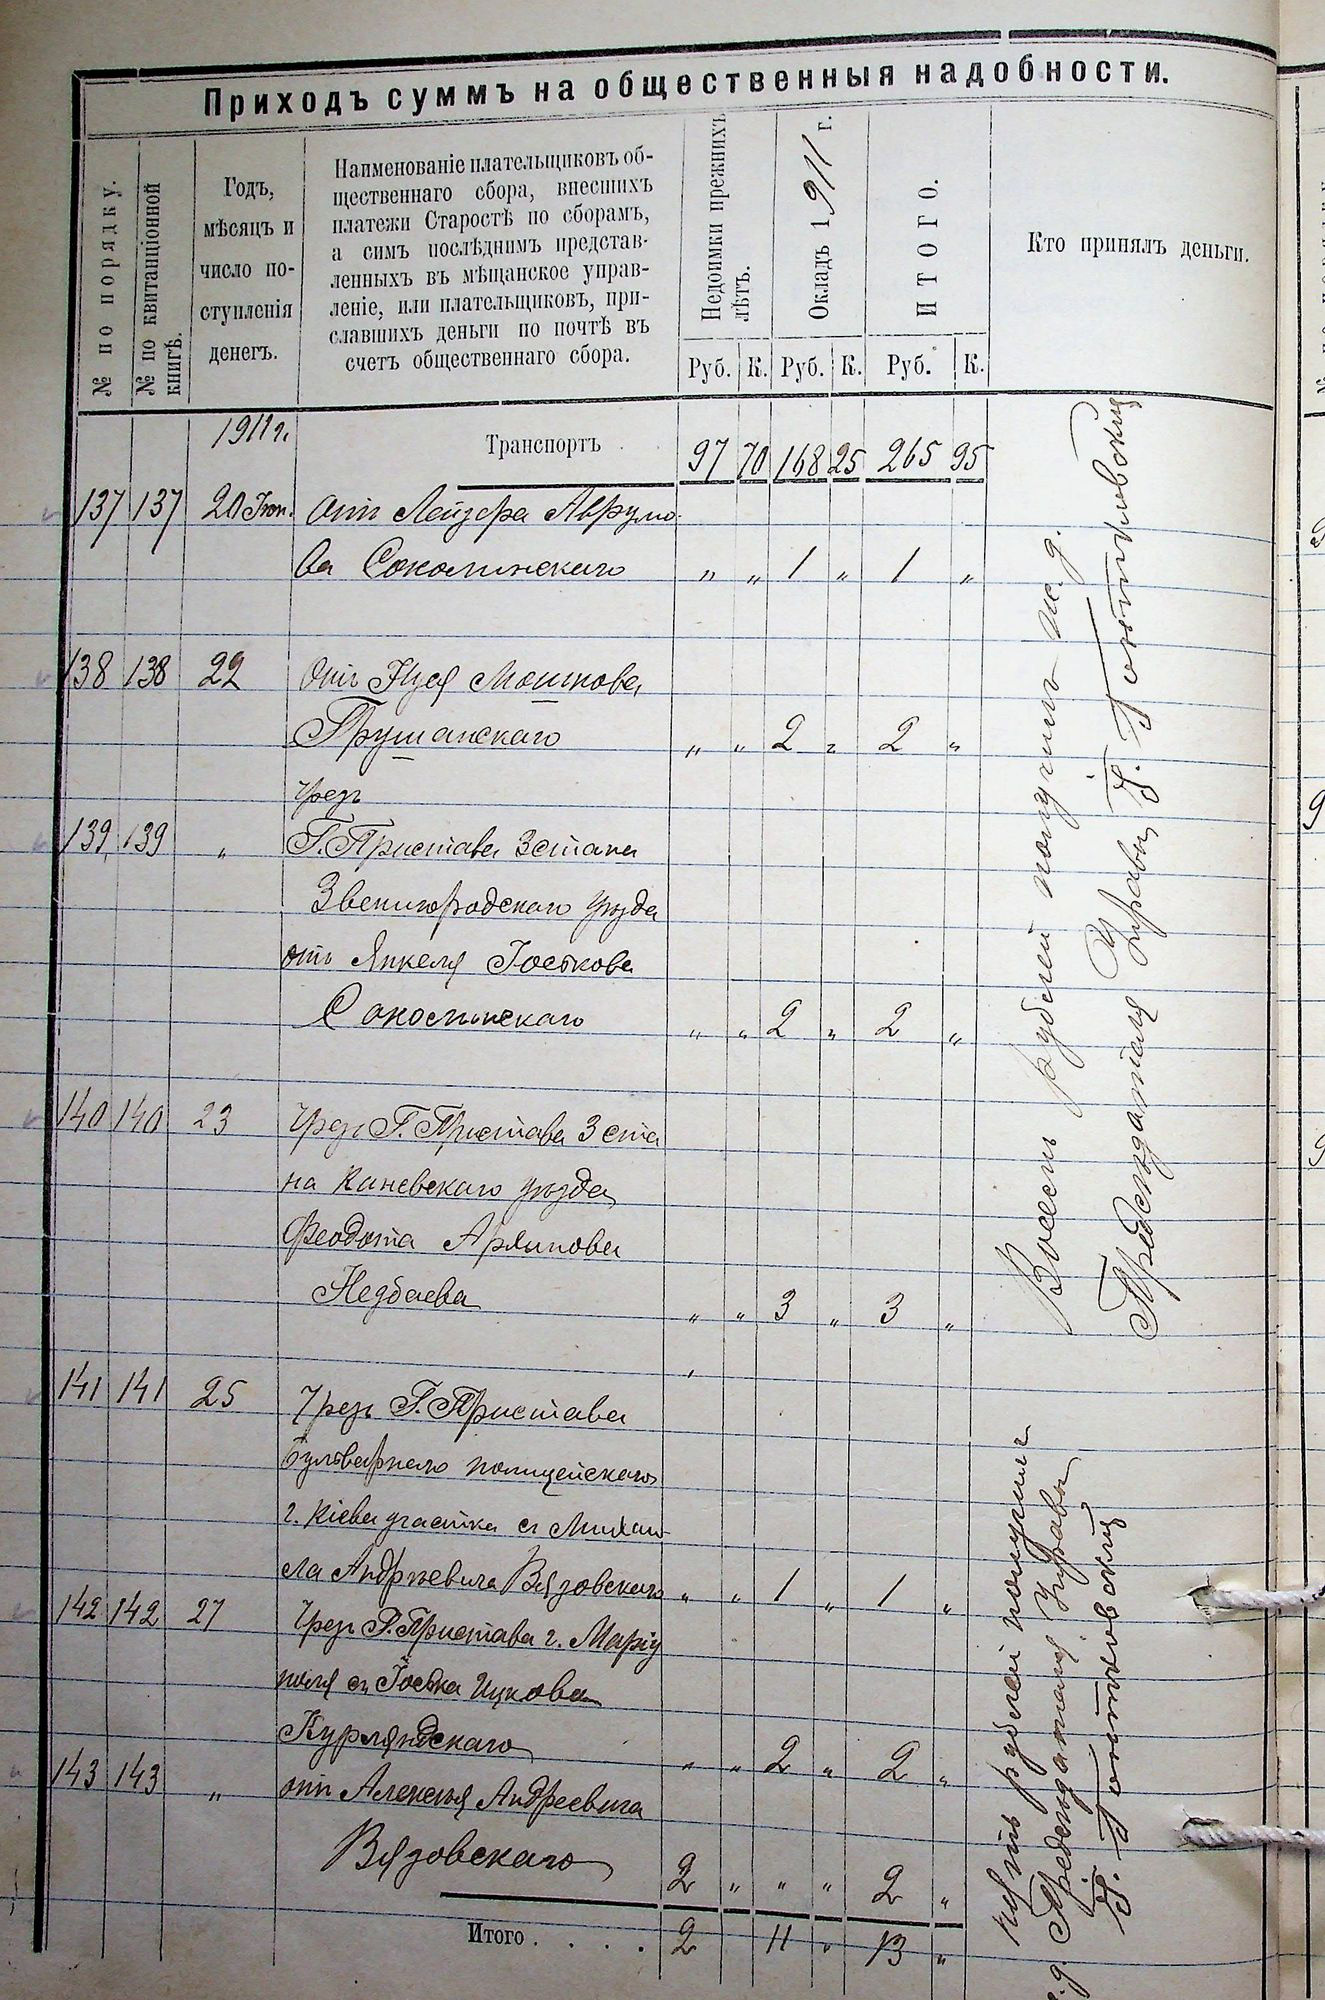 Приходъ суммъ на общественныя надобности.
№ по порядку.
№ по квитанціонной
книгѣ.
Годъ,
мѣсяцъ и
число по-
ступленія
денегъ.
Наименованіе плательщиковъ об-
щественнаго сбора, внесшихъ
платежи Старостѣ по сборамъ,
а симъ послѣднимъ представ-
ленныхъ въ мѣщанское управ-
леніе, или плательщиковъ, при-
славшихъ деньги по почтѣ въ
счетъ общественнаго сбора.
Недоимки прежнихъ
лѣтъ.
Окладъ 1911 г.
ИТОГО.
Кто принялъ деньги.
Руб. К. Руб. К. Руб. К.
1911 г. Транспортъ 97 70 168 25 265 95
137 137 20 Іюн. отъ Лейзера Аврумо-
ва Соколинскаго „ „ 1 „ 1 „
138 138 22 отъ Нуся Мошкова
Грушанскаго „ „ 2 „ 2 „
Чрезъ
139 139 „ Г. Пристава 3 стана
Звенигородскаго уѣзда
отъ Янкеля Іоськова
Соколинскаго „ „ 2 „ 2 „
140 140 23 Чрезъ Г. Пристава 3 ста
на Каневскаго уѣзда
Феодота Архипова
Недбаева „ „ 3 „ 3 „
141 141 25 Чрезъ Г. Пристава
Бульварнаго полицейскаго
г. Кіева участка съ Михаи-
ла Андреевича Вязовскаго „ „ 1 „ 1 „
142 142 27 Чрезъ Г. Пристава г. Маріу
поля съ Іоська Ицкова
Курляндскаго „ „ 2 „ 2 „
143 143 „ отъ Алексѣя Андреевича
Вязовскаго 2 „ „ „ 2 „
Итого . . . . 2 11 „ 13 „
Восемь рублей получилъ и. д.
Предсѣдателя Управы Г.
пять рублей получилъ
и. д. Предсѣдателя Управы
Г.